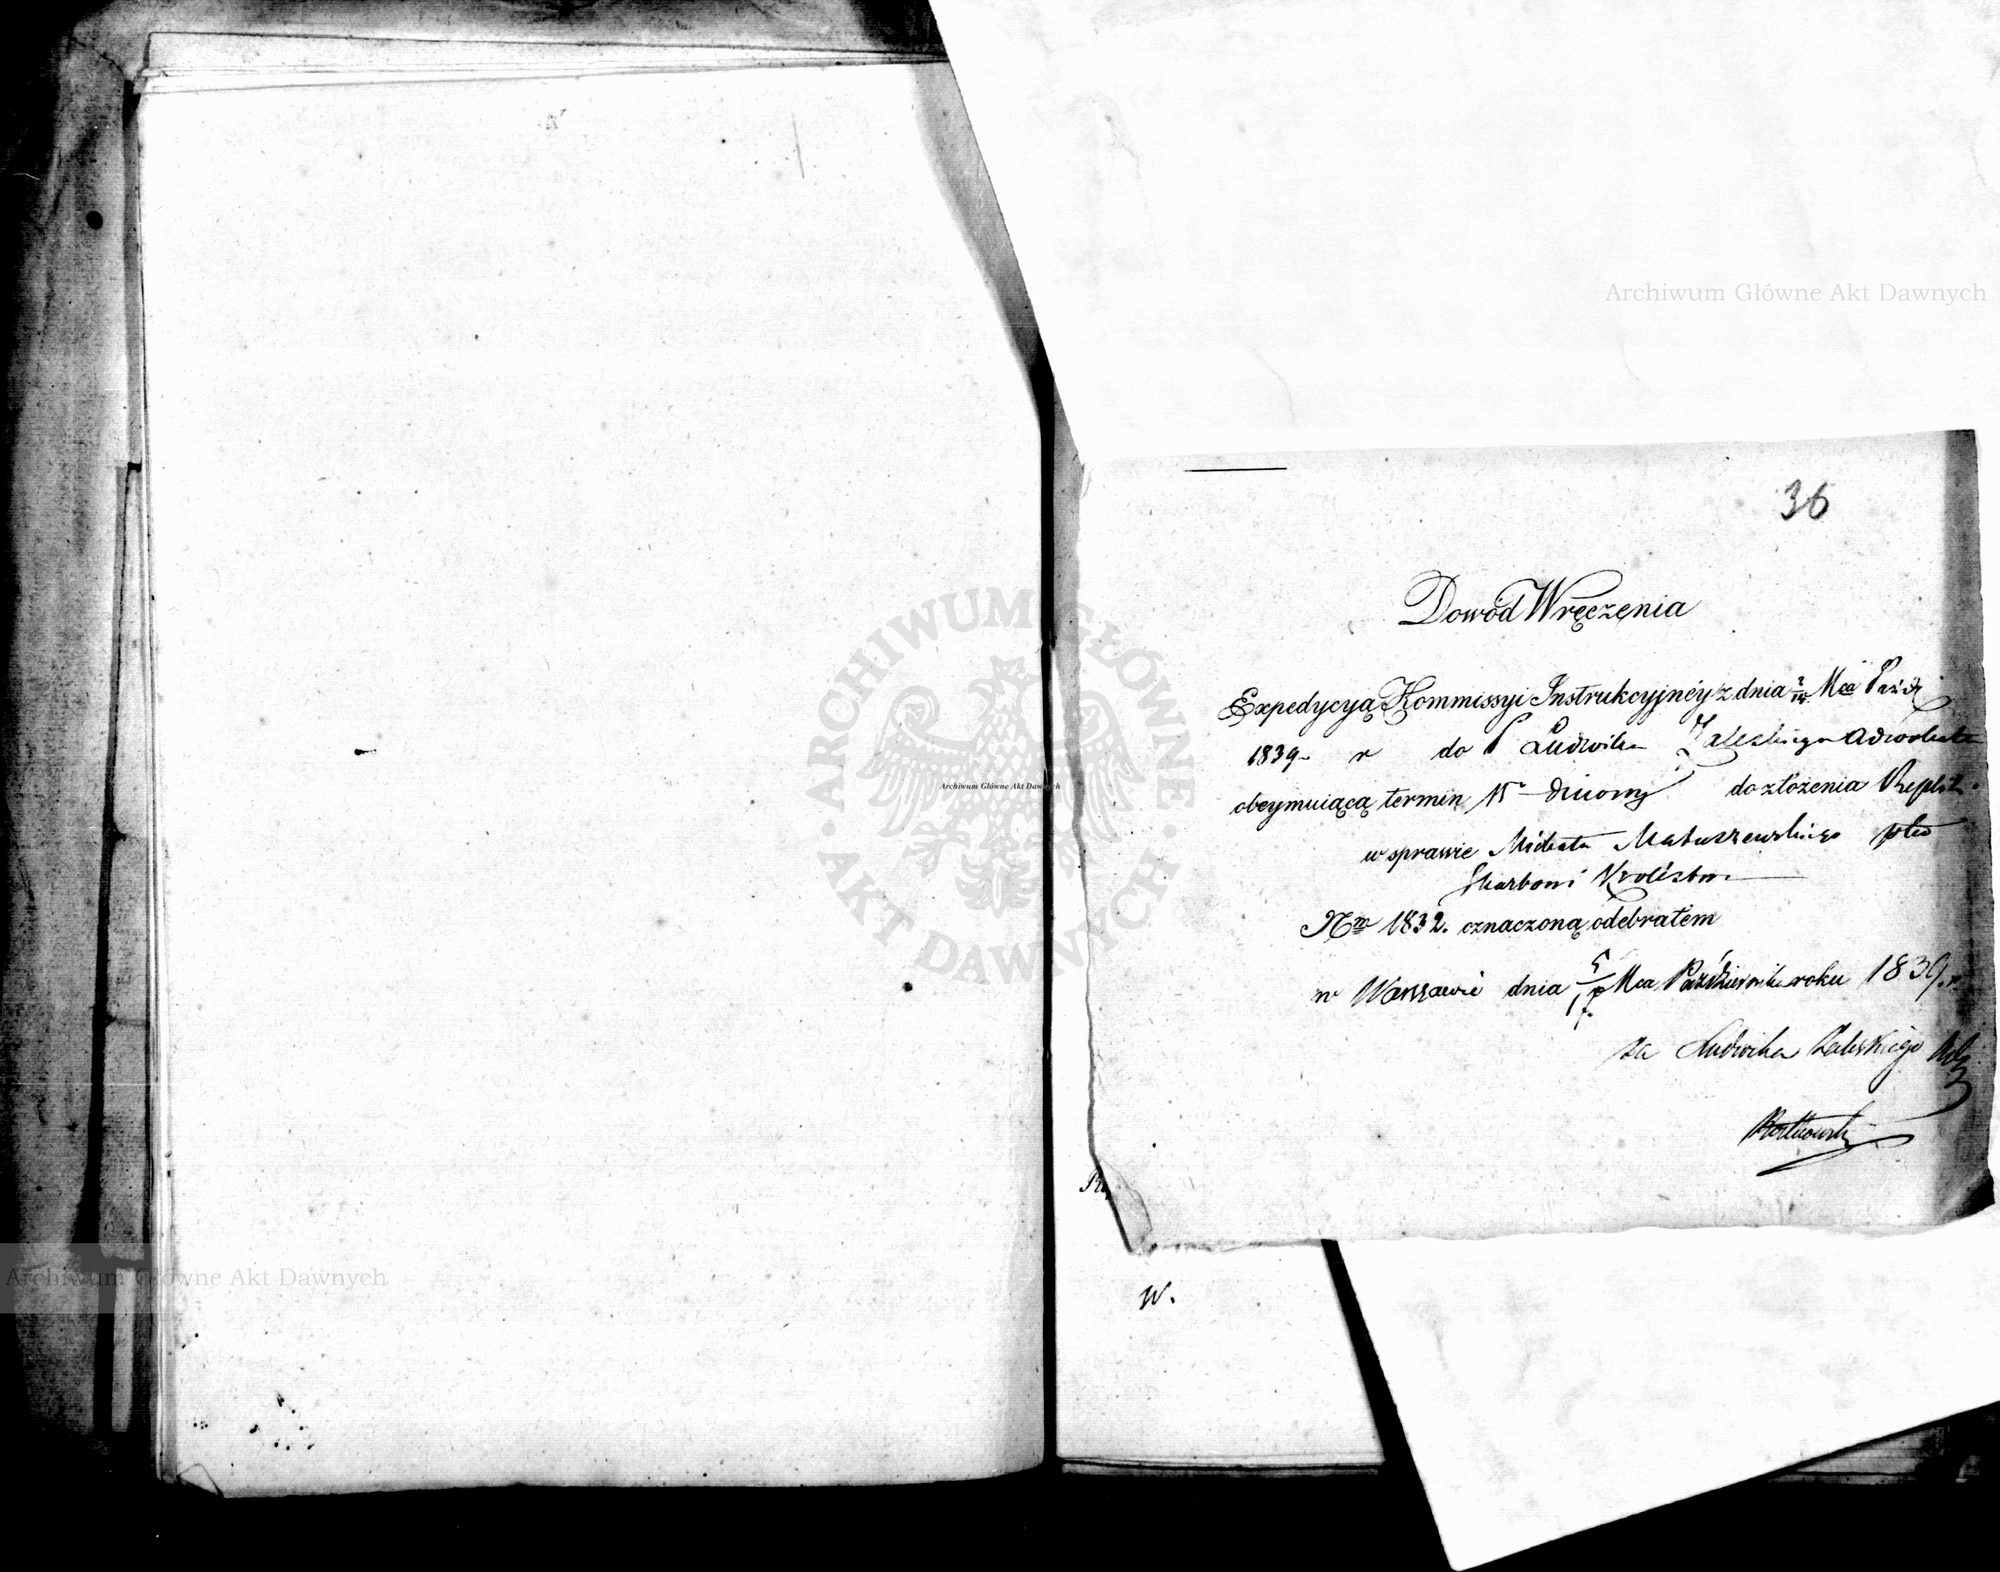 Archiwum Główne Akt Dawnych
36
Dowód Wręczenia
Expedycyą Kommissyi Instrukcyjnéy z dnia 2/14 Mca Paźdz
1839 r do P Ludwika Zaleskiego Adwokata
obeymuiącą termin 15 dniowy do złożenia Repliki
w sprawie Michała Matuszewskiego pko
Skarbowi Królestwa
Nro 1832. oznaczoną odebrałem
w Warszawie dnia 5/17 Mca Października roku 1839. r.
za Ludwika Zaleskiego Adw
ARCHIWUM GŁÓWNE AKT DAWNYCH
Archiwum Główne Akt Dawnych
Archiwum Główne Akt Dawnych
W.